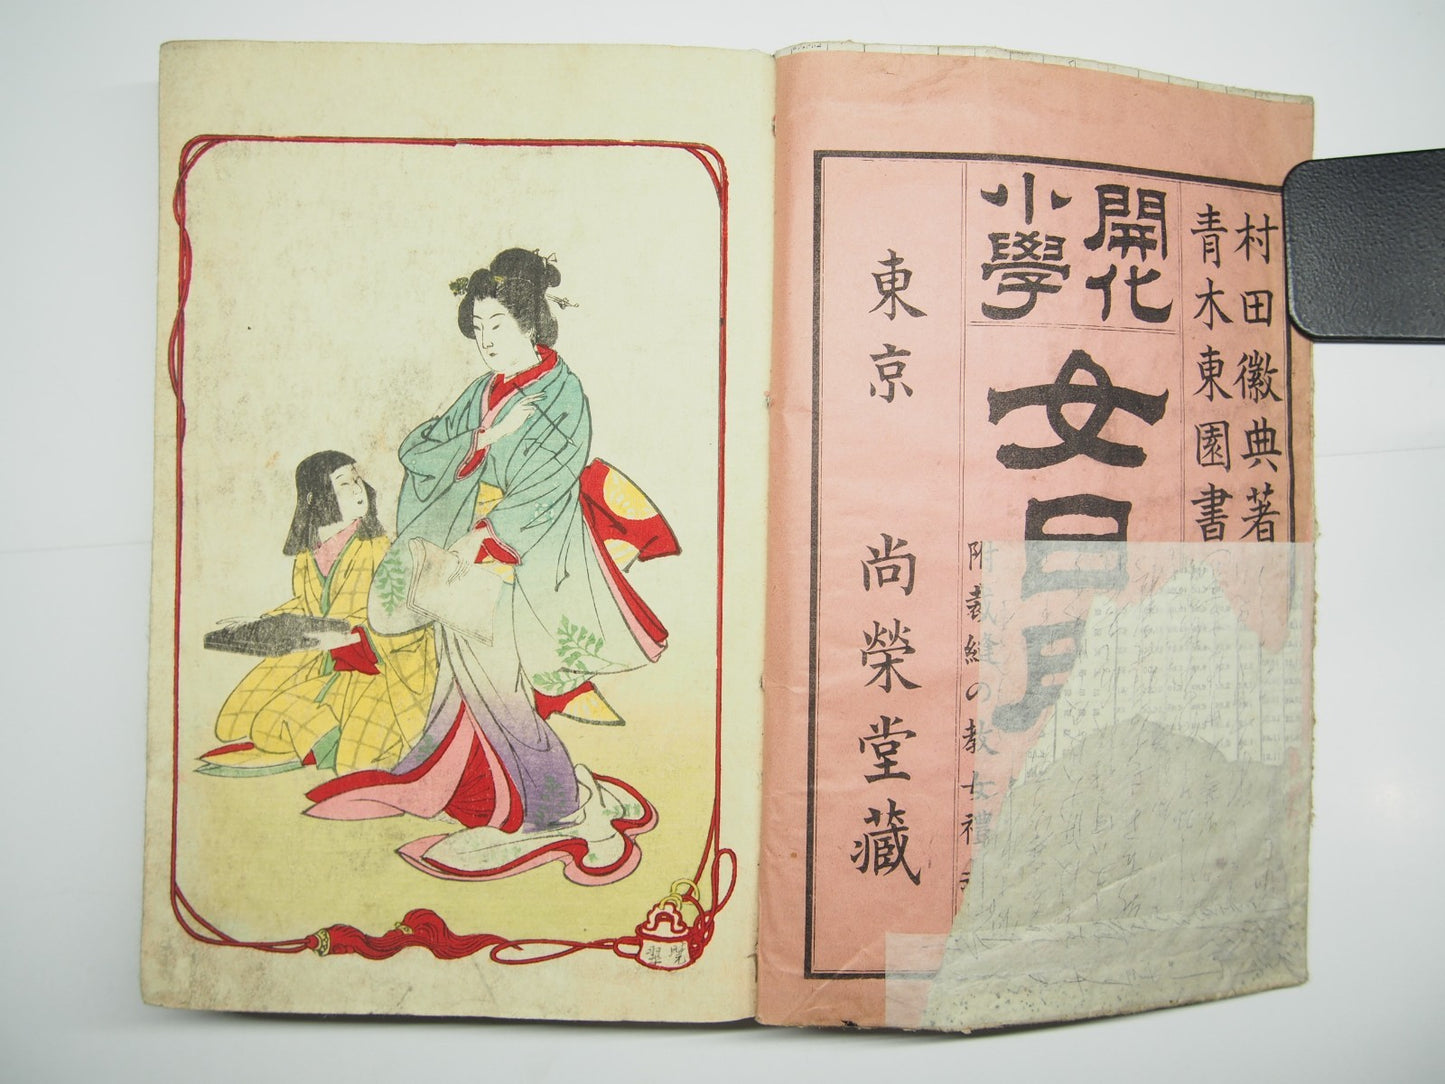 村田徽典著
青木東園書
開化
小學
女日用
附裁縫の教女禮
東京 尚榮堂藏